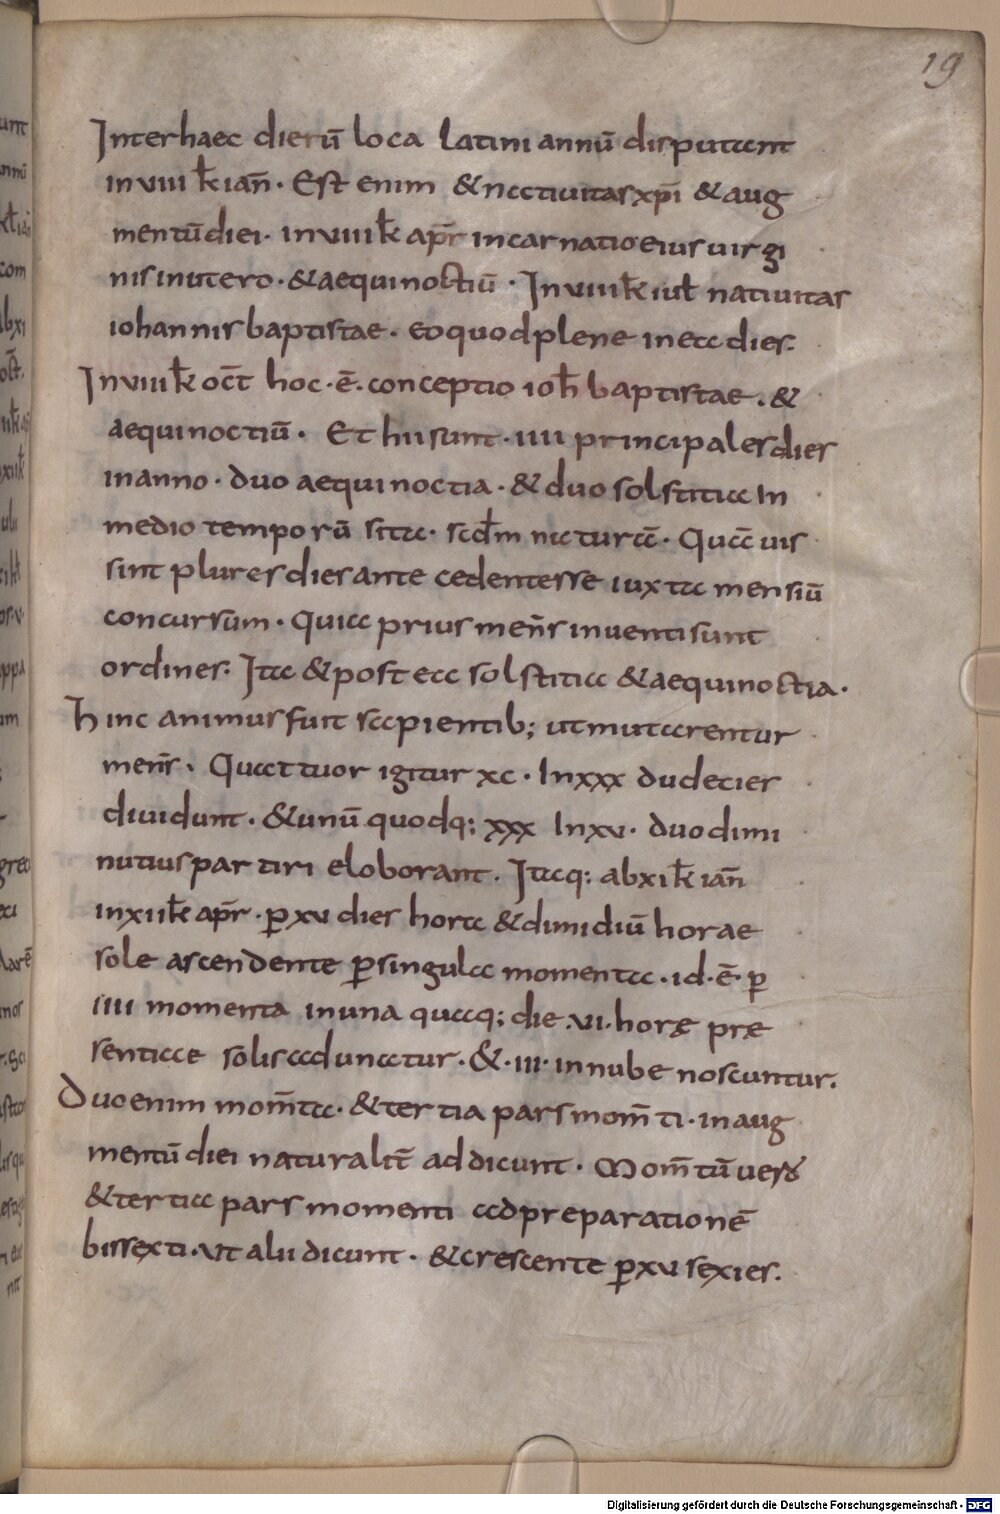 19
Interhaec dierū loca latini annū disputant
in viii kł ian̄. Est enim & nativitas xp̄i & aug
mentū diei. in viii kł ap̄r incarnatio eius virgi
nis in utero. & aequinoctiū. In viii kł iuł nativitas
iohannis baptistae. eo quod plene ineta dies.
In viii kł oct̄ hoc. ē. conceptio ioħ baptistae. &
aequinoctiū. Et hii sunt. iiii principales dies
in anno. duo aequinoctia. & duo solstitia In
medio temporū sita. scdm̄ naturā. Quā uis
sint plures dies ante cedentesse iuxta mensiū
concursum. Quia prius men̄s inventi sunt
ordines. Ita & post ea solstitia & aequinoctia.
hinc animus fuit sapientib; ut mutarentur
men̄s. Quattuor igitur xc. In xxx dudecies
dividunt. & unū quodq; xxx In xv. duo dimi
nutius partiri eloborant. Itaq; ab xi kł ian̄
in xii kł ap̄r. p̄ xv dies hora & dimidiū horae
sole ascendente p̄ singula momenta. id. ē. p̄
iiii momenta in una quaq; die. vi. horę prę
sentiae solis adunatur. &. iii. in nube noscuntur.
Duo enim mom̄ta. & tertia pars mom̄ti. in aug
mentū diei naturalit̄ addicunt. Mom̄tū vero
& tertia pars momenti ad preparationē
bissexti. ut alii dicunt. & crescente p̄ xv sexies.
Digitalisierung gefördert durch die Deutsche Forschungsgemeinschaft - DFG